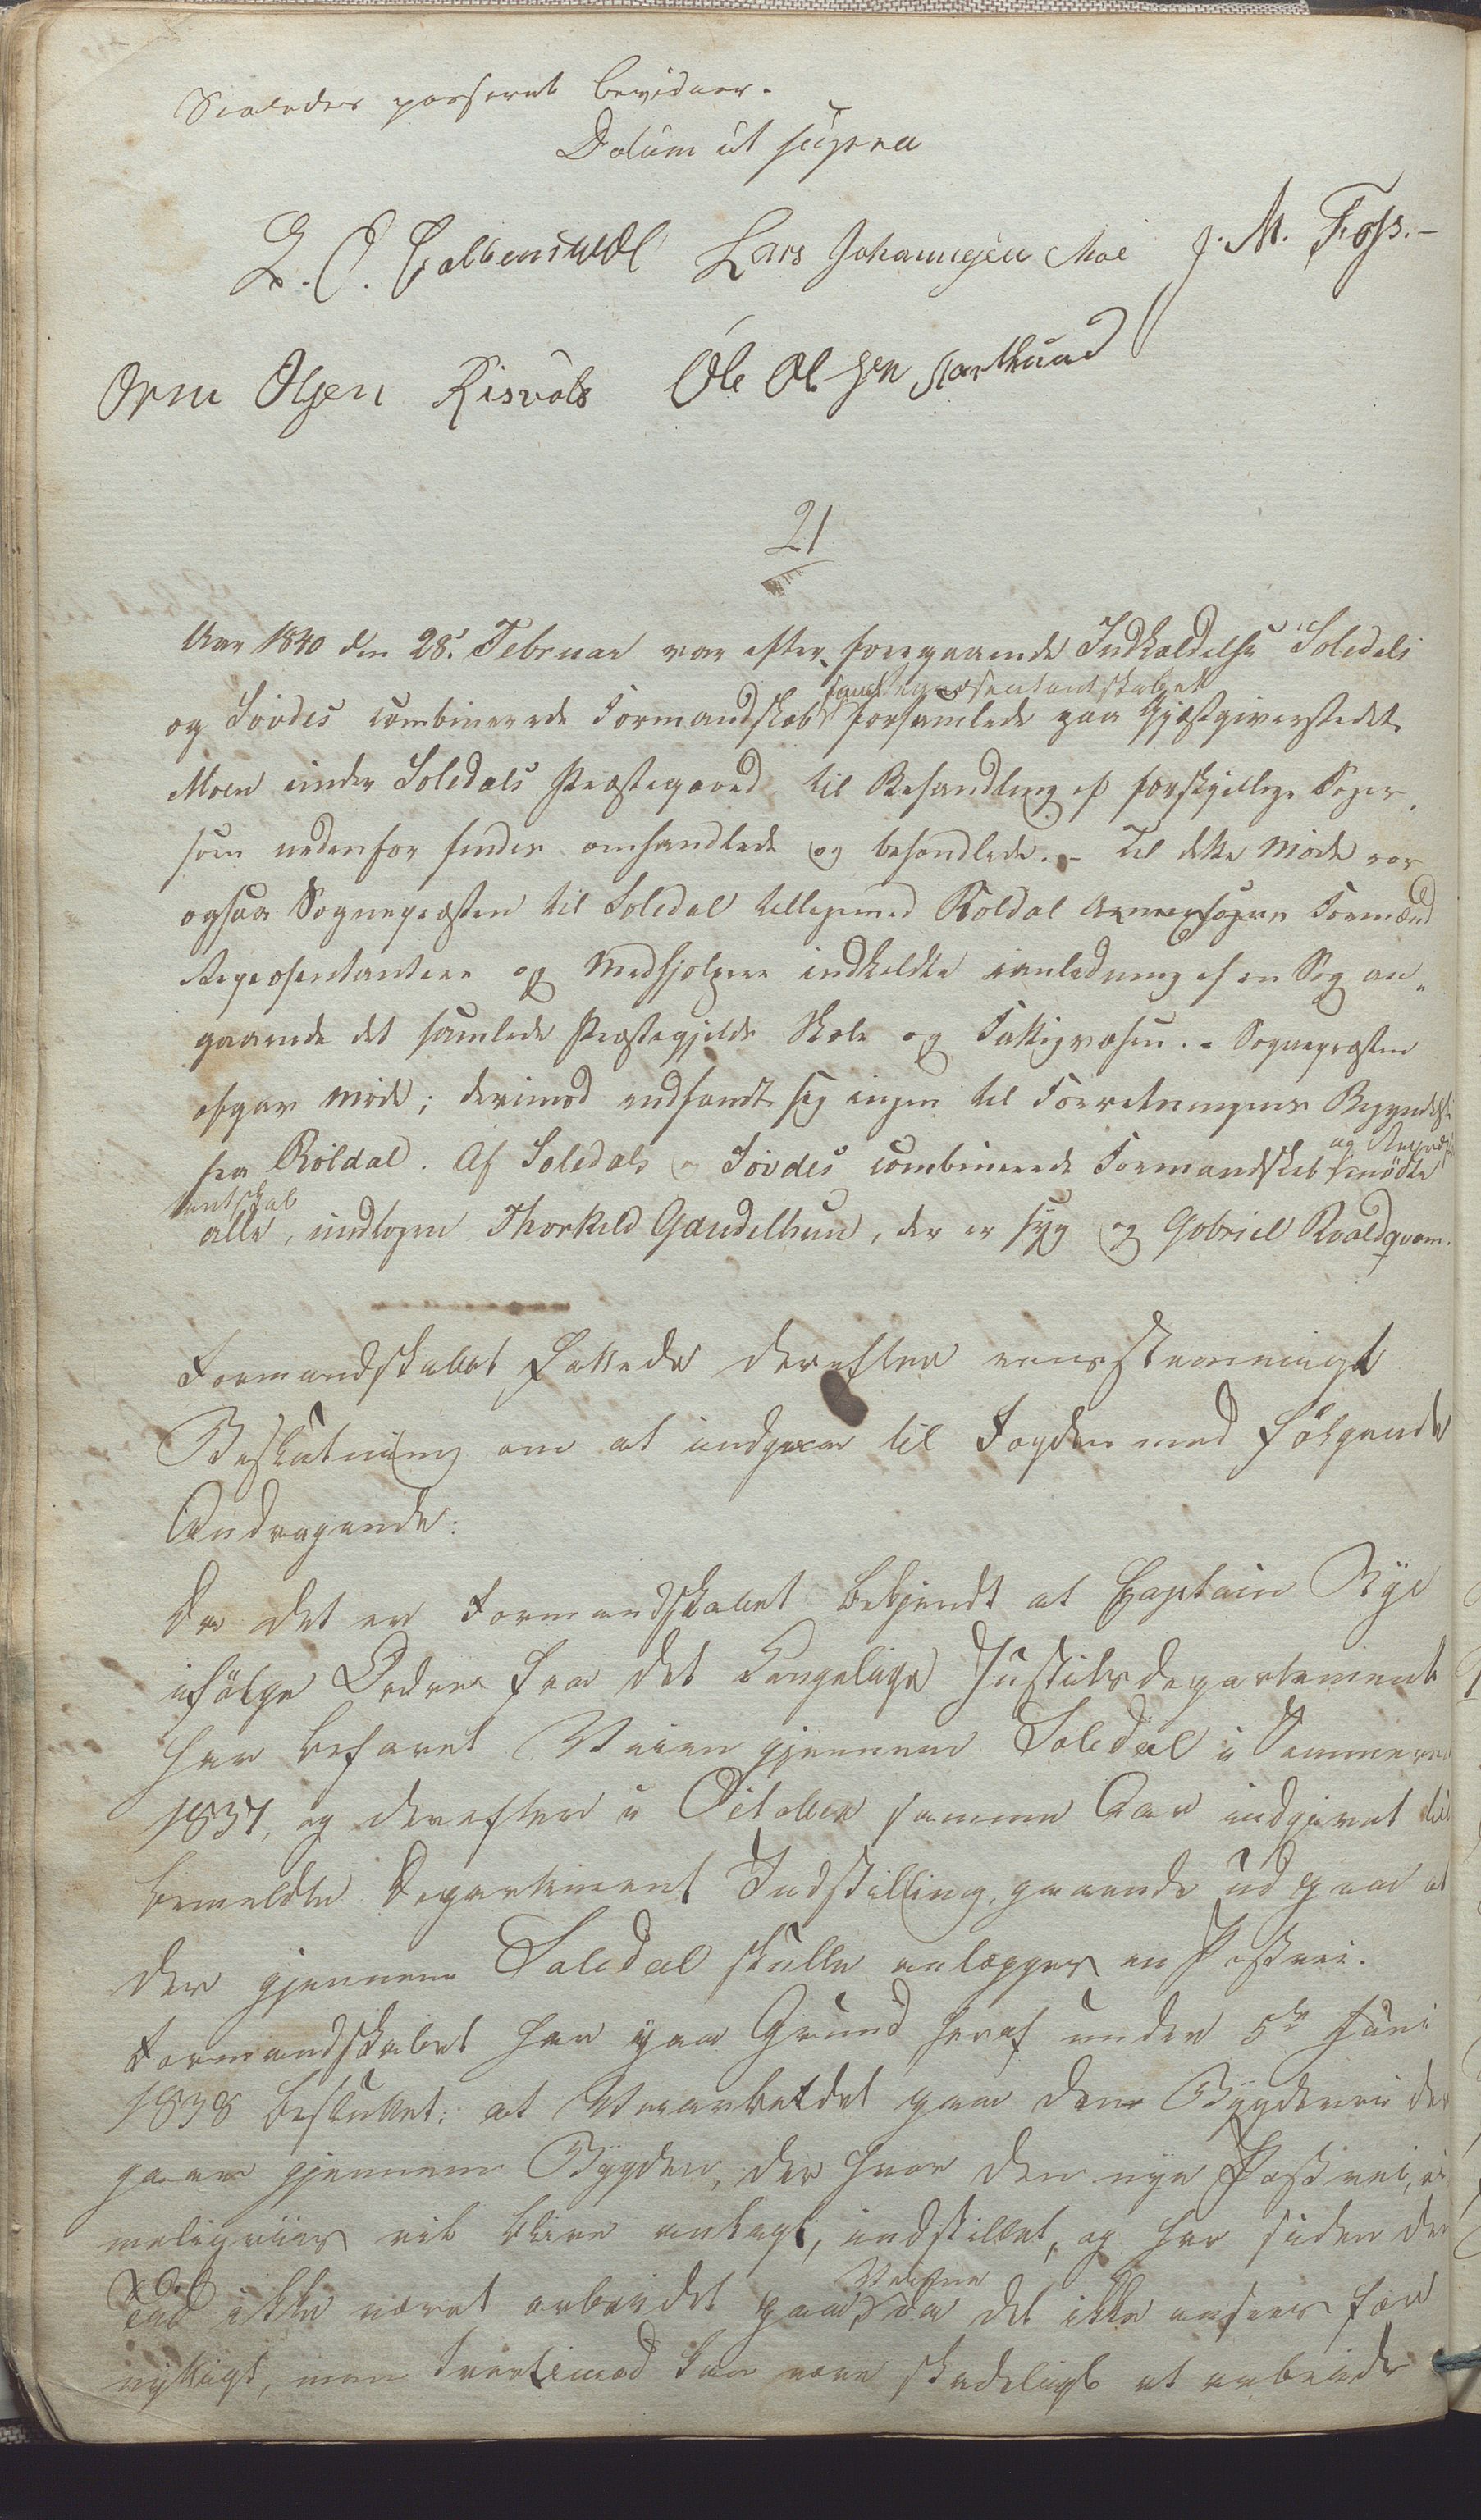 Saaledes passeret bevidner.
Datum ut supra
L. O. Lars Johannesen Moe J. M. Foss.-
Orm Olsen Risvold Ole Olsen
21
Aar 1840 den 28. Februar var efter foregaaende Indkaldelse Soledals
og Søvdes combinerede Formandskab samt repræsentantskabet forsamlede paa Gjæstgiverstedet
Moen under Soledals Præstegaard til Behandling af forskjellige Sager,
som nedenfor findes omhandlede og behandlede. - Til dette Møde var
ogsaa Sognepræsten til Soledal tilligemed Roldal Annexsogns Formænd
Repræsentantere og Medhjelpere indkaldte i anledning af en Sag an„
gaaende det samlede Præstegjelds Skole og Fattigvæsen. - Sognepræsten
afgav Møde; derimod indfandt sig ingen til Forretningens Begyndelse
fra Röldal. Af Soledals og Søvdes combinerede Formandskab og Repræsen
tantskab mødte
alle, undtagen Thorkild Gandelhun, der er syg og Gabriel Roaldqvam.
Formandskabet fattede derefter eensstemmigt
Beslutning om at indgaae til Fogden med følgende
Andragende:
Da det er Formandskabet bekjendt at Captain Rye
ifølge Ordre fra det Kongelige Justitsdepartement
har befaret Veien gjennem Soledal i Sommeren
1837, og derefter i October samme Aar indgivet til
bemeldte Departement Indstilling, gaaende ud paa at
der gjennem Soledal skulle anlægges en Postvei.
Formandskabet har paa Grund heraf under 5te Juni
1838 besluttet: at Veiarbeidet paa den Bygdevei der
gaaer gjennem Bygden, der hvor den nye Postvei, ri
meligviis vil blive anlagt, indstillet, og har siden den
Tid ikke været arbeidet paa Veiene da det ikke ansees for
nyttigt, men tvertimod kan være skadeligt at arbeide